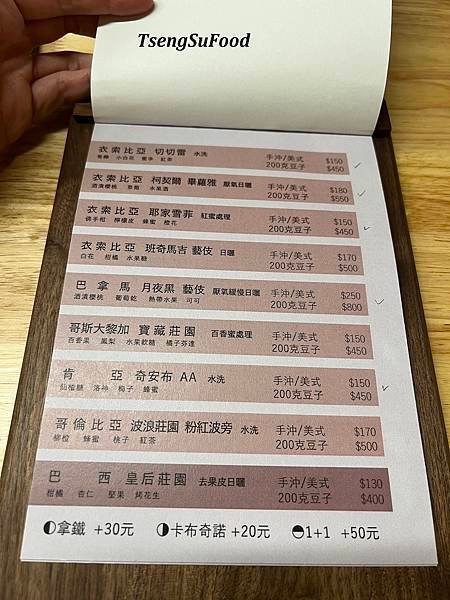 TsengSuFood
衣索比亞 切切雷 水洗 手沖/美式 $150
小白花 蜜李 紅茶 200克豆子 $450
衣索比亞 柯契爾 畢蘿雅 厭氧日曬 手沖/美式 $180
酒漬櫻桃 草莓 水果酒 200克豆子 $550
衣索比亞 耶家雪菲 紅蜜處理 手沖/美式 $150
佛手柑 檸檬皮 蜂蜜 橙花 200克豆子 $450
衣索比亞 班奇馬吉 藝伎 日曬 手沖/美式 $170
白花 柑橘 水果糖 200克豆子 $500
巴拿馬 月夜黑 藝伎 厭氧緩慢日曬 手沖/美式 $250
酒漬櫻桃 葡萄乾 熱帶水果 可可 200克豆子 $800
哥斯大黎加 寶藏莊園 百香蜜處理 手沖/美式 $150
百香果 鳳梨 水果軟糖 橘子芬達 200克豆子 $450
肯亞 奇安布 AA 水洗 手沖/美式 $150
仙楂糖 洛神 梅子 蜂蜜 200克豆子 $450
哥倫比亞 波浪莊園 粉紅波旁 水洗 手沖/美式 $170
柳橙 蜂蜜 桃子 紅茶 200克豆子 $500
巴西 皇后莊園 去果皮日曬 手沖/美式 $130
柑橘 杏仁 堅果 烤花生 200克豆子 $400
拿鐵 +30元 卡布奇諾 +20元 1+1 +50元